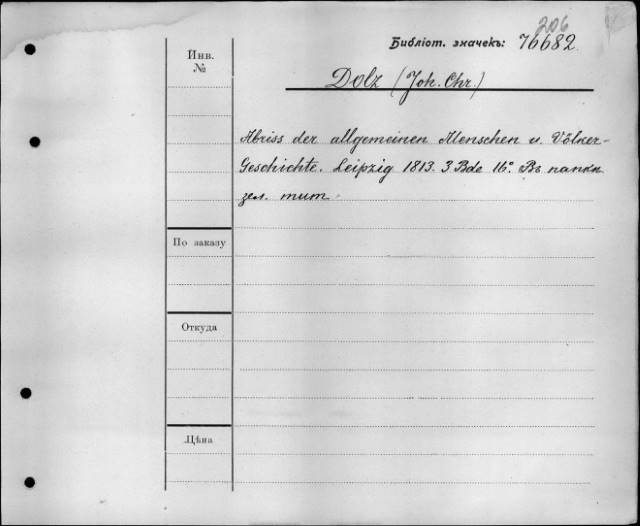 206
Библіот. значекъ: 76682
Инв.
№
Dolz (Joh. Chr.)
Abriss der allgemeinen Menschen u. Völker-
Geschichte. Leipzig 1813. 3 Bde 16°. Въ папкѣ
зел. тит
По заказу
Откуда
Цѣна